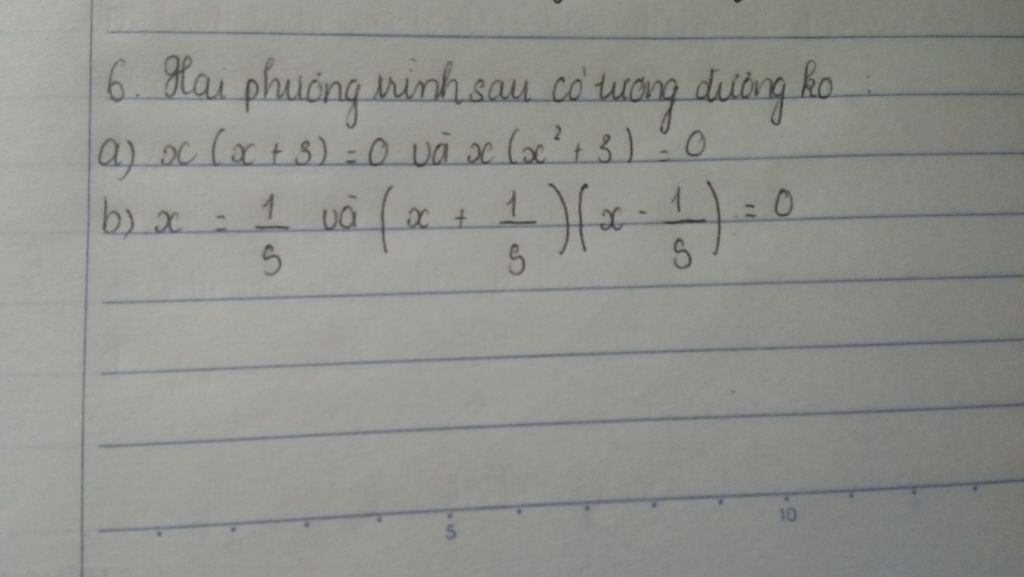 6. Hai phương trình sau có tương đương ko :
a) x (x + 3) = 0 và x (x² + 3) = 0
b) x = 1/5 và (x + 1/5)(x - 1/5) = 0
5 10